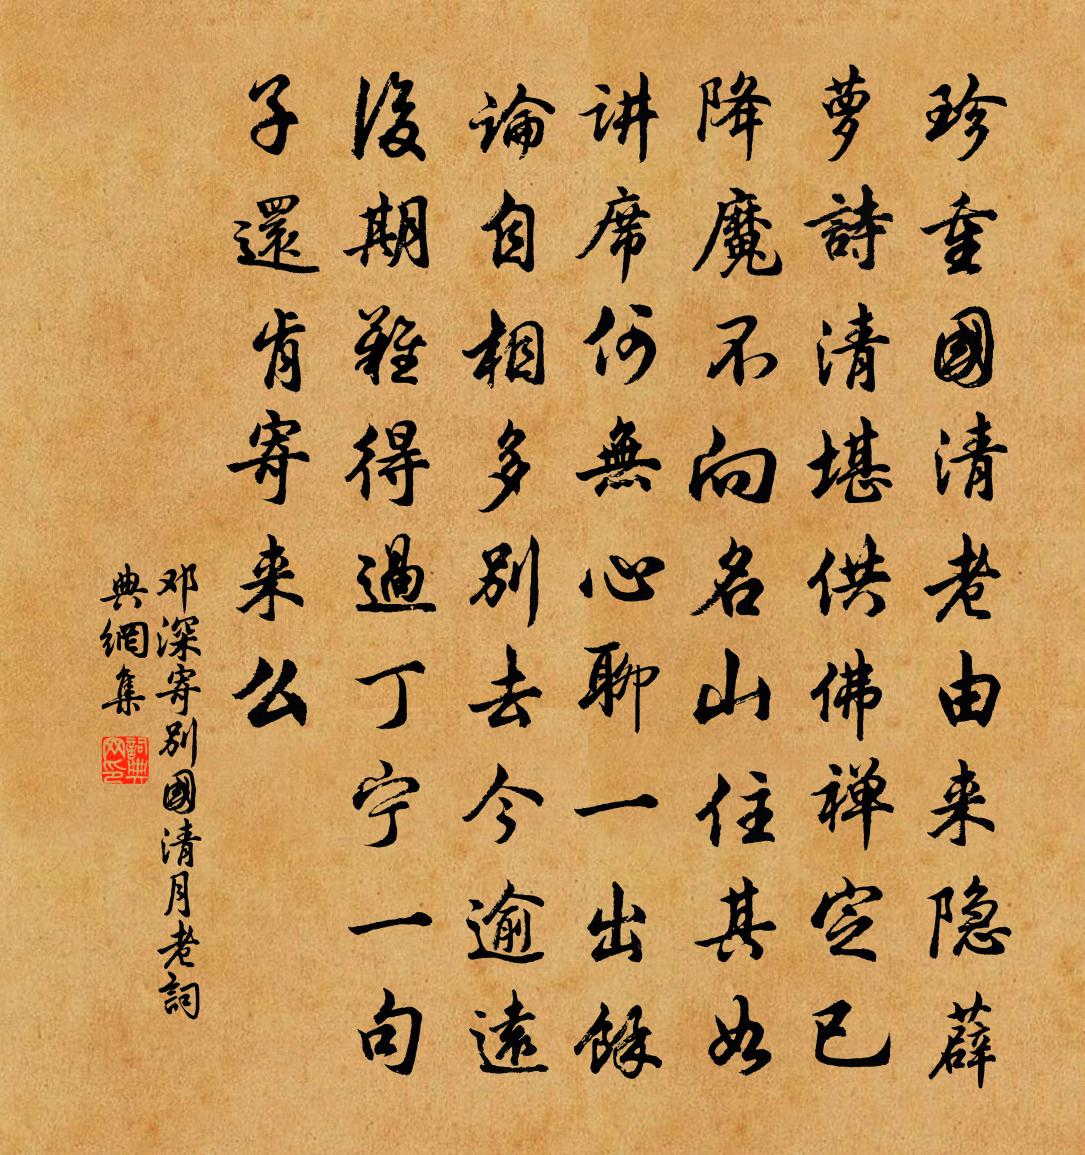 珍重國清老由来隐薜
萝詩清堪供佛禅定已
降魔不向名山住其如
讲席何無心聊一出餘
論自相多别去今逾遠
後期難得過丁宁一句
子還肯寄来么
邓深寄别國清月老詞
典網集
詞典
网印